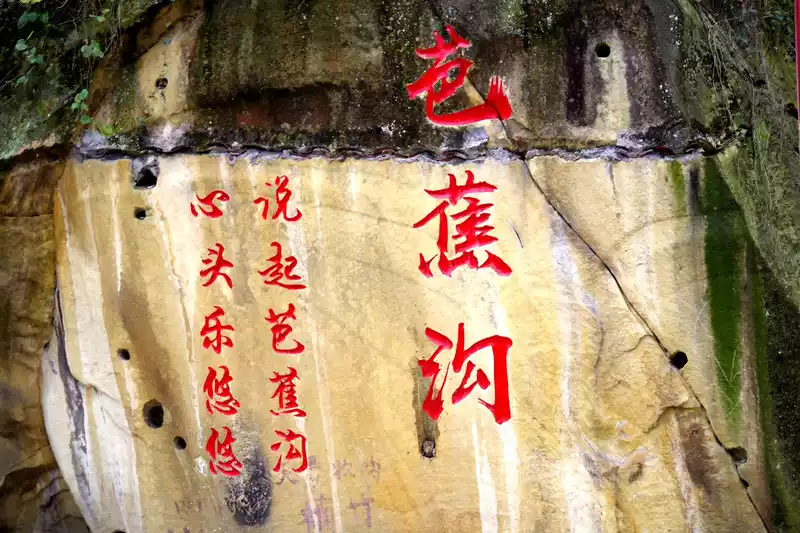 芭蕉沟
说起芭蕉沟
心头乐悠悠